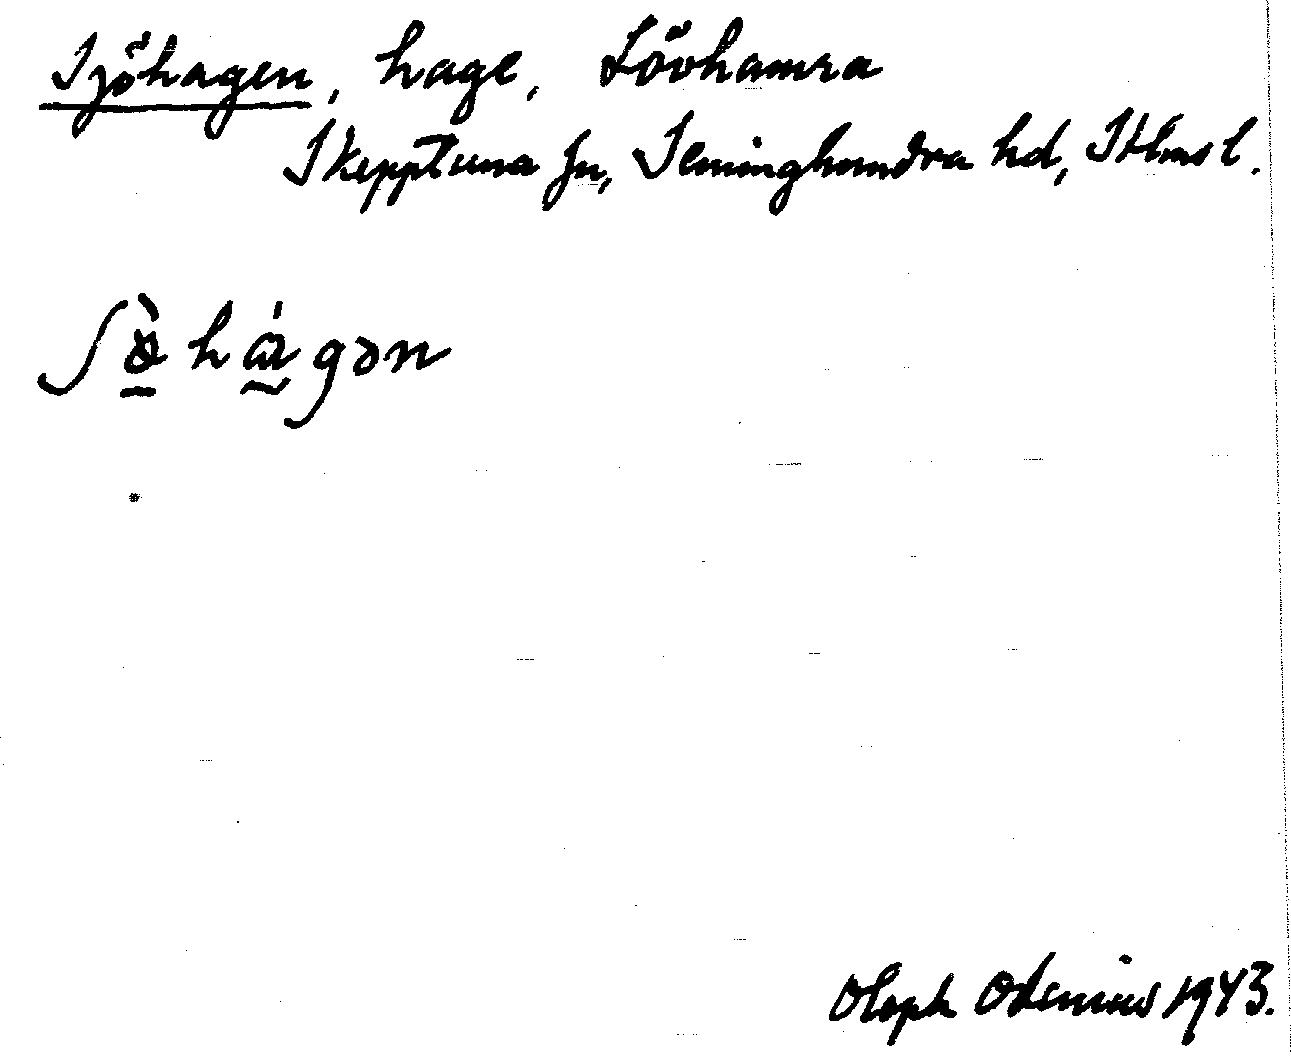 Sjöhagen, hage, Lövhamra
Skepptuna sn, Seminghundra hd, Sthms l.
Oloph Odenius 1943.